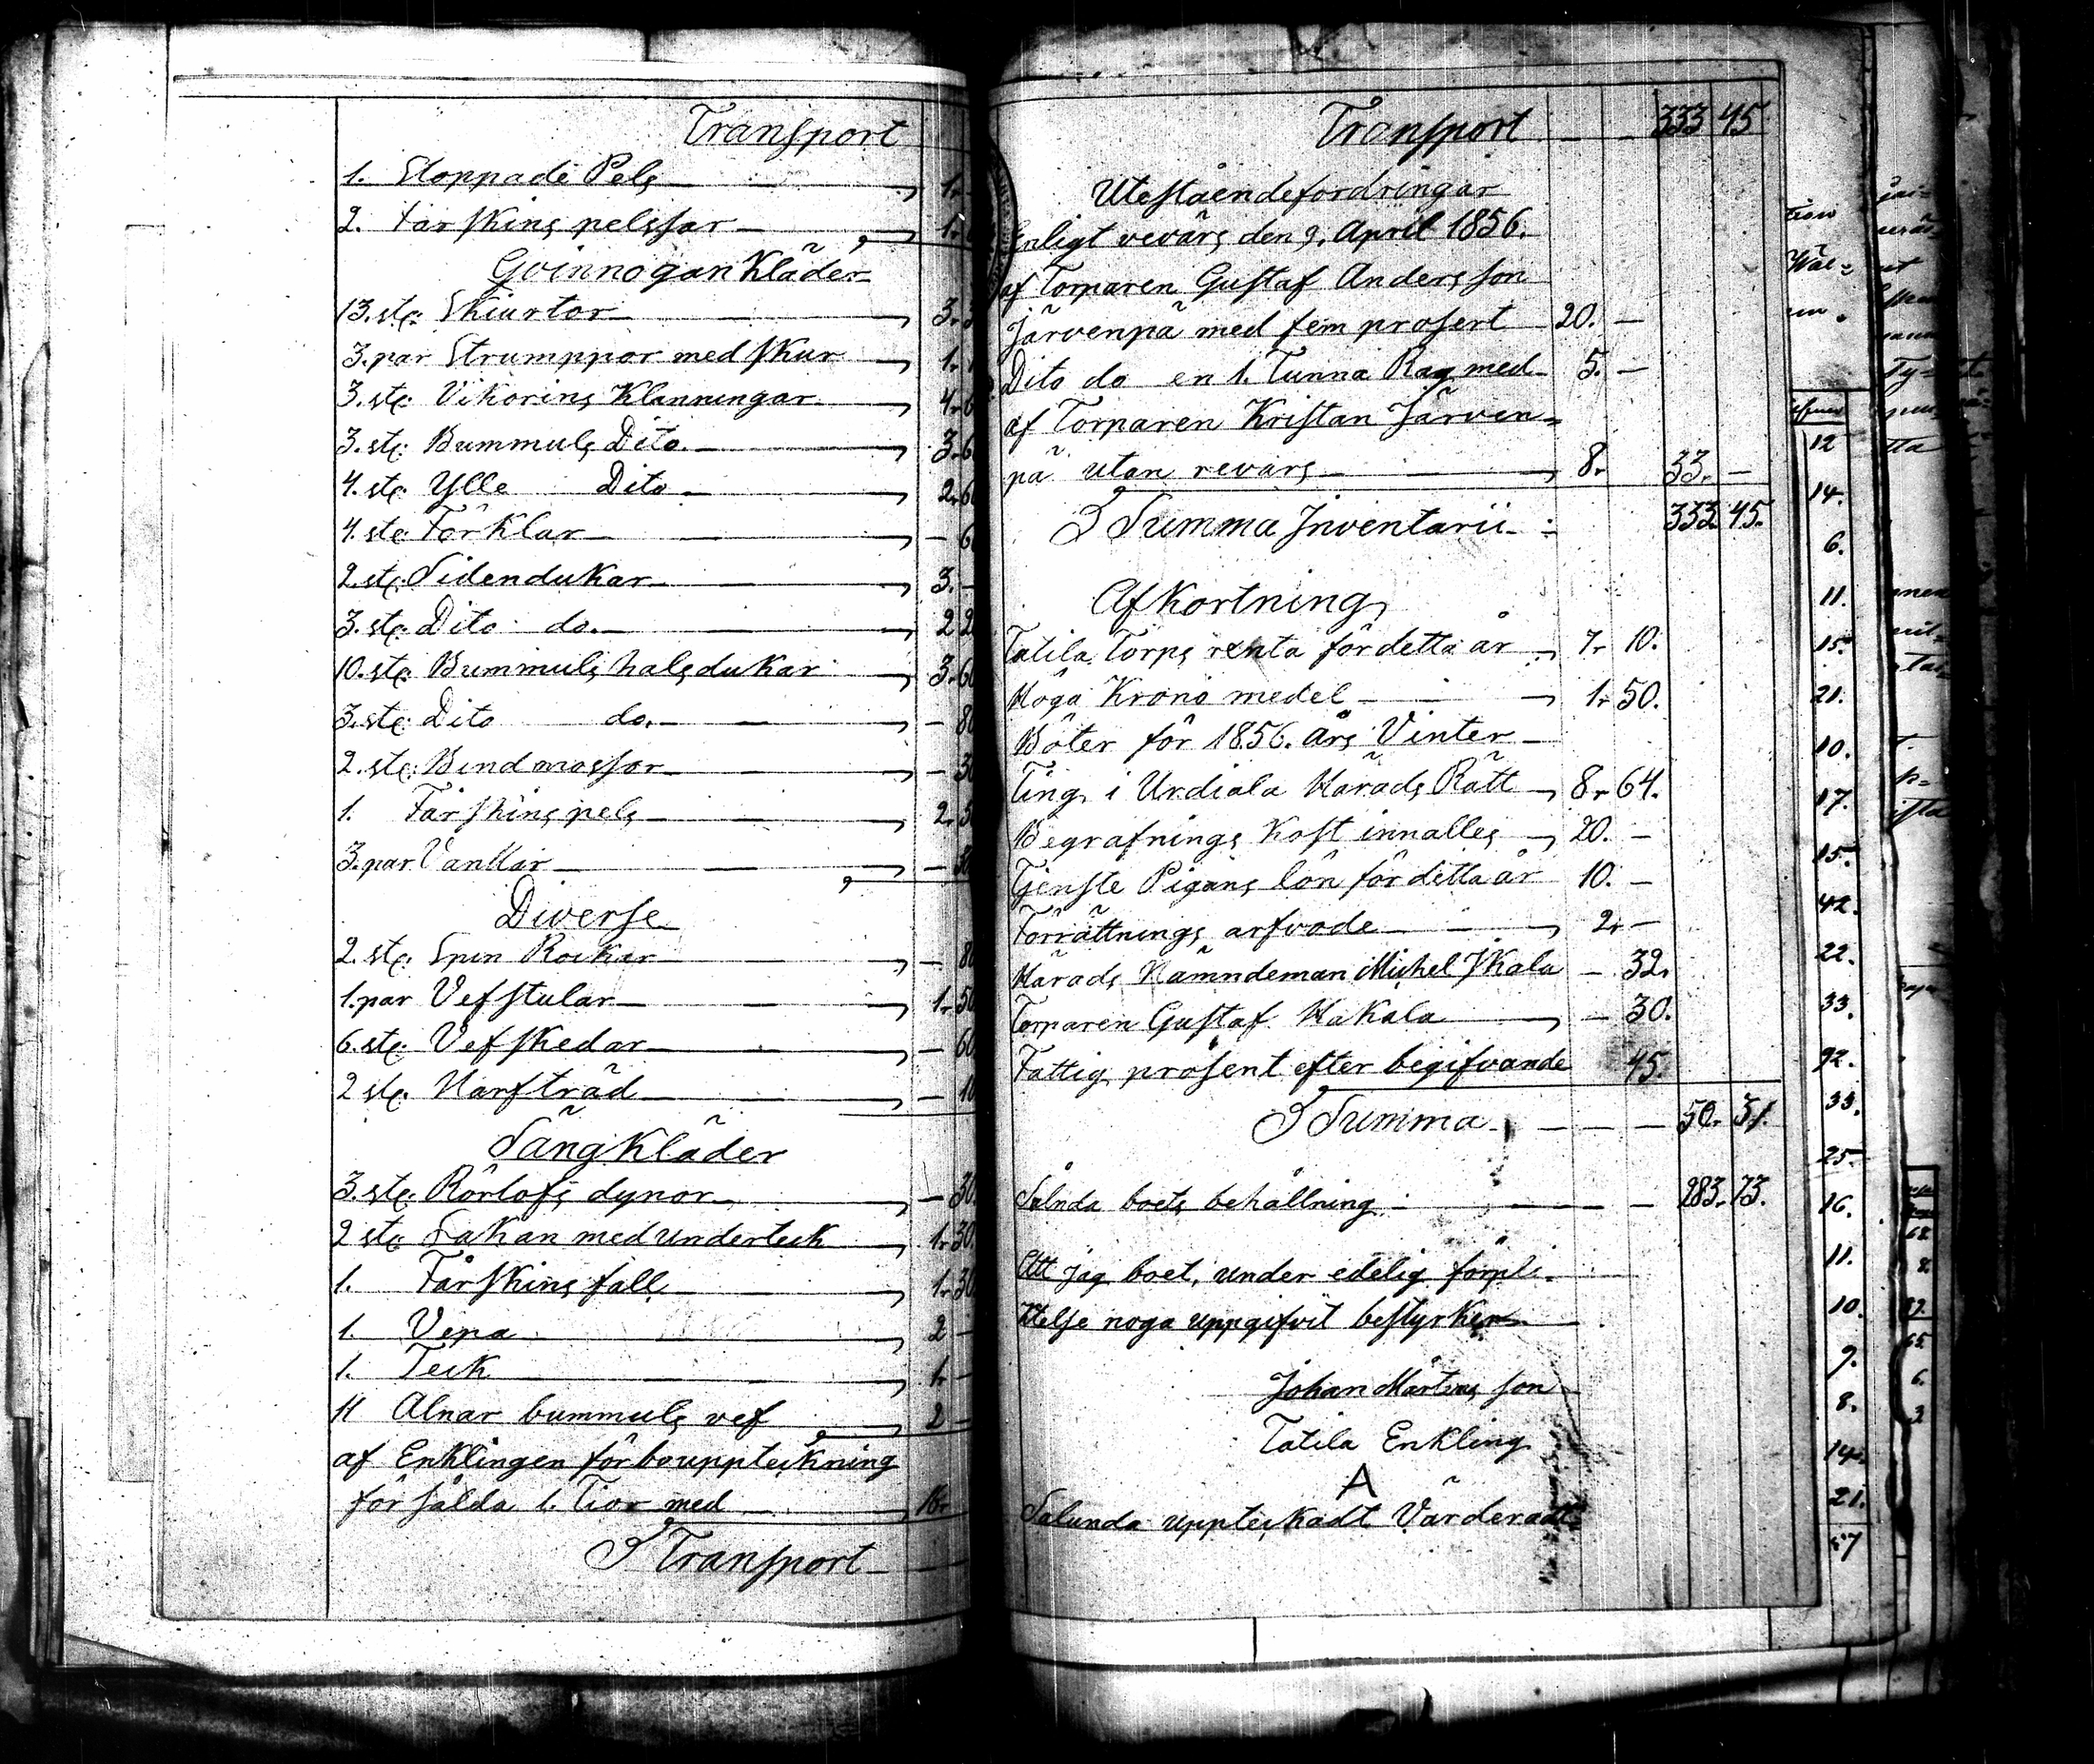 Transport
1. Stoppade Pels 1.
2. Får skins pelssar 1.
Qvinnogan Kläder
13. stc: Skiurtor 3.
3. par Strumppor med skur 1.
3. stc: Vikorins Klänningar 4. 6
3. stc: Bummuls Dito. 3. 6
4. stc: Ylle Dito 2. 6
4. stc: Förklar — 6
2. stc: Sidendukar 3. —
3. stc: Dito do. 2 2
10. stc: Bummuls halsdukar 3. 60
3. stc: Dito do. — 80
2. stc: Bindmossor — 30
1. Får skins pels 2. 5
3. par Vantlar — 30
Diverse
2. stc: Spin Rockar — 80
1. par Vefstular 1. 50
6. stc: Vefskedar — 60
2 stc: Harfträd — 10
Sängkläder
3. stc: Rörlofs dynor — 30.
2 stc Lakan med underteck 1. 30.
1. Får skins fäll 1. 30
1. Vepa 2 —
1. Teck 1. —
11 Alnar bummuls vef 2 —
af Enklingen för bouppteckning
för sålda 1. Tior med 16.
Transport
Transport 333 45
Uteståendefordringar
Enligt revärs den 9. April 1856.
af Torparen Gustaf Andersson
Järvenpä med fem prosert 20. —
Dito do en 1. Tunna Rag med 5. —
af Torparen Kristan Järven=
pä utan revärs 8. 33. —
Summa Inventarii 333. 45.
Afkortning
Tatila Torps renta för detta år 7. 10.
Höga Krono medel 1. 50.
Böter för 1856. års Vinter
Ting i Urdiala Härads Rätt 8. 64.
Begrafnings Kost innalles 20. —
Tjenste Pigans lön för detta år 10. —
Förrättnings arfvode 2. —
Härads Nämndeman Michel Jkala — 32.
Torparen Gustaf Hakala — 30.
Fattig prosent efter begifvande 45.
Summa 50. 31.
Sålnda boets behållning 283. 73.
Att jag boet, under edelig förpli-
ktelse noga uppgifvit bestyrker
Johan Mårtens son
Tatila Enkling
A
Salunda uppteckadt Värderadt
12
14.
6.
11.
15.
21.
10.
17.
15.
42.
22.
33.
92.
33.
25.
16.
11.
10.
9.
8.
14.
21.
57